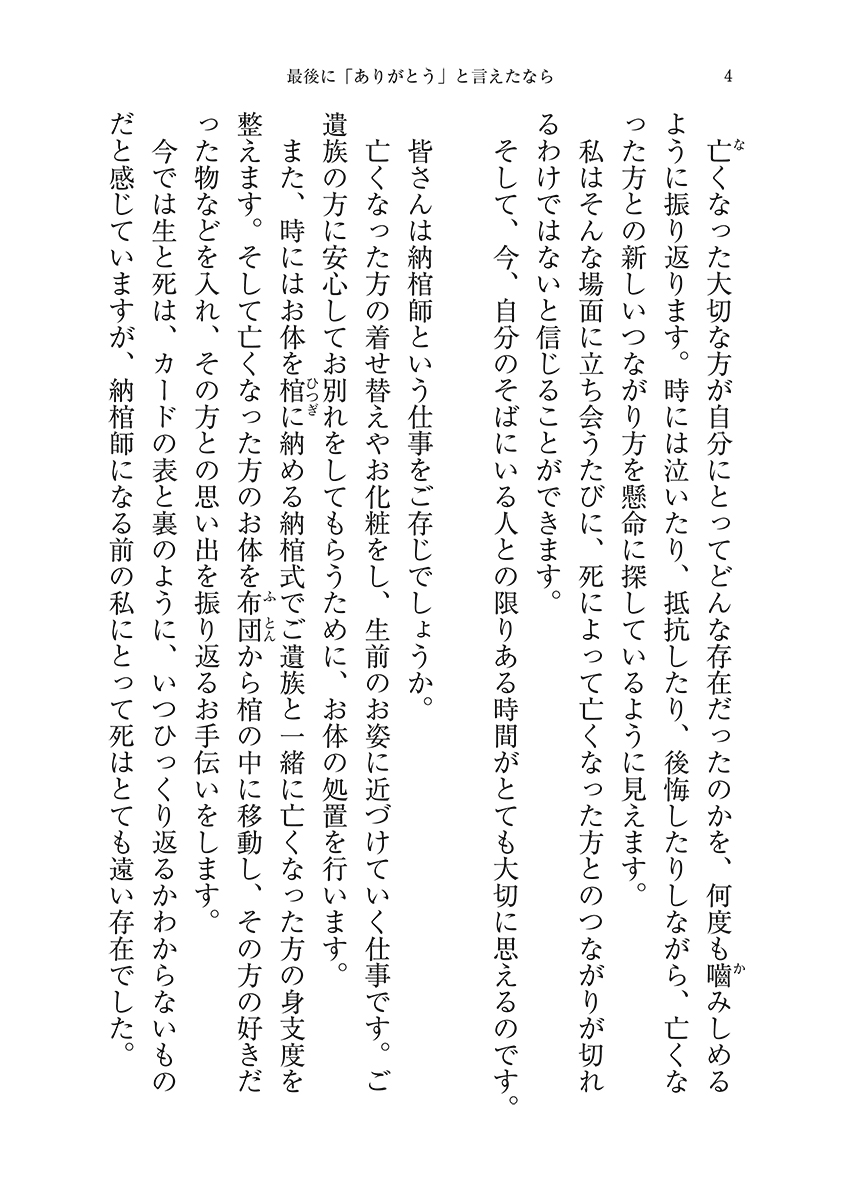 最後に「ありがとう」と言えたなら
4
亡くなった大切な方が自分にとってどんな存在だったのかを、何度も嚙みしめる
ように振り返ります。時には泣いたり、抵抗したり、後悔したりしながら、亡くな
った方との新しいつながり方を懸命に探しているように見えます。
私はそんな場面に立ち会うたびに、死によって亡くなった方とのつながりが切れ
るわけではないと信じることができます。
そして、今、自分のそばにいる人との限りある時間がとても大切に思えるのです。
皆さんは納棺師という仕事をご存じでしょうか。
亡くなった方の着せ替えやお化粧をし、生前のお姿に近づけていく仕事です。ご
遺族の方に安心してお別れをしてもらうために、お体の処置を行います。
また、時にはお体を棺に納める納棺式でご遺族と一緒に亡くなった方の身支度を
整えます。そして亡くなった方のお体を布団から棺の中に移動し、その方の好きだ
った物などを入れ、その方との思い出を振り返るお手伝いをします。
今では生と死は、カードの表と裏のように、いつひっくり返るかわからないもの
だと感じていますが、納棺師になる前の私にとって死はとても遠い存在でした。
な
か
ひつぎ
ふとん